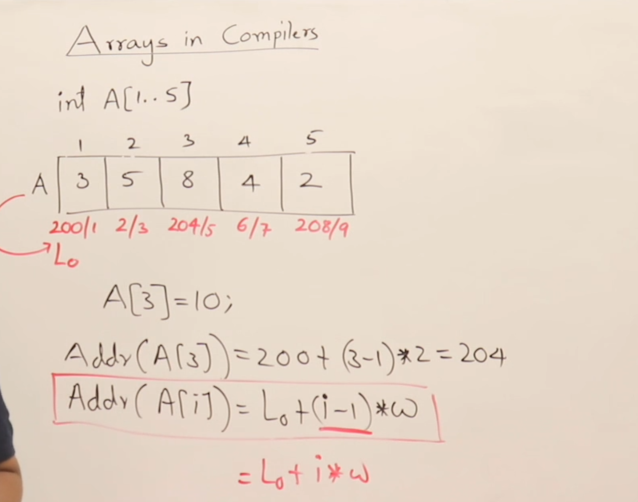 Arrays in Compilers
int A[1..5]
1 2 3 4 5
A 3 5 8 4 2
200/1 2/3 204/5 6/7 208/9
L₀
A[3]=10;
Addr(A[3])=200+(3-1)*2=204
Addr(A[i])=L₀+(i-1)*w
=L₀+i*w